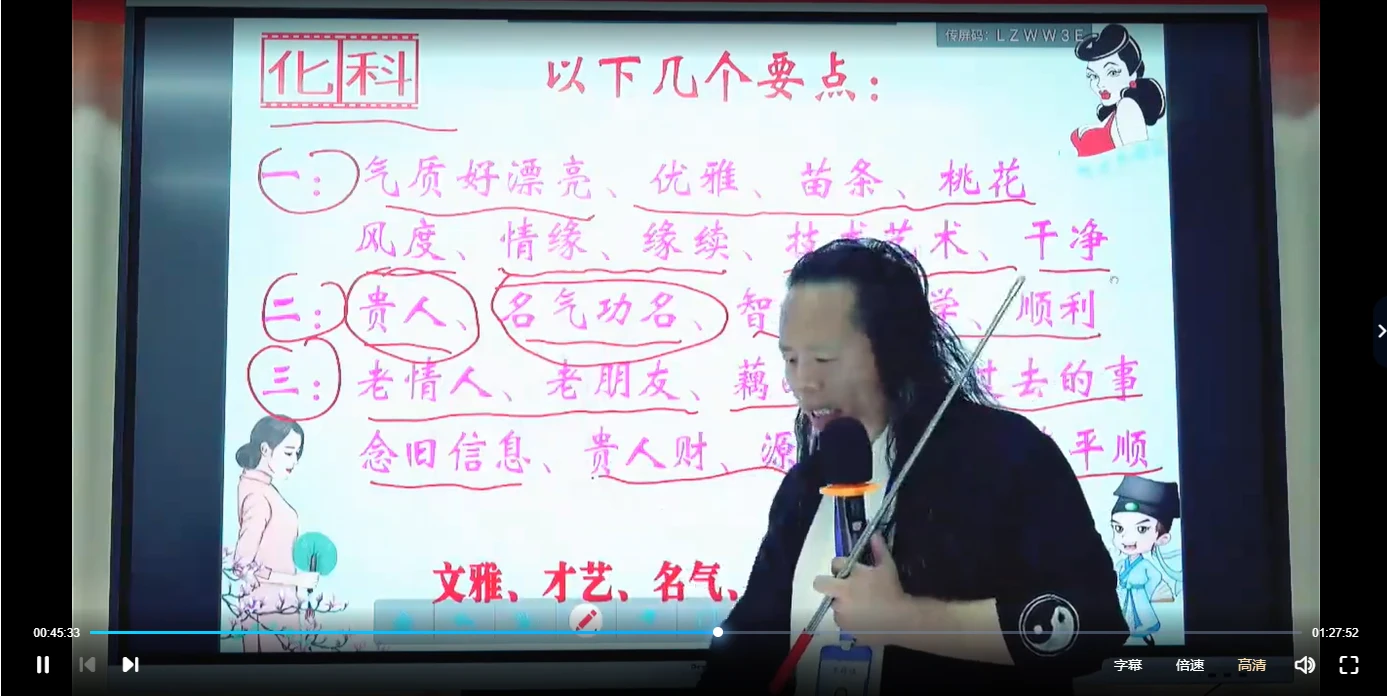 传屏码：LZWW3E
化科
以下几个要点：
一：气质好漂亮、优雅、苗条、桃花
风度、情缘、缘续、技术艺术、干净
二：贵人、名气功名、智 学、顺利
三：老情人、老朋友、藕 过去的事
念旧信息、贵人财、源 平顺
文雅、才艺、名气、
00:45:33
01:27:52
字幕 倍速 高清